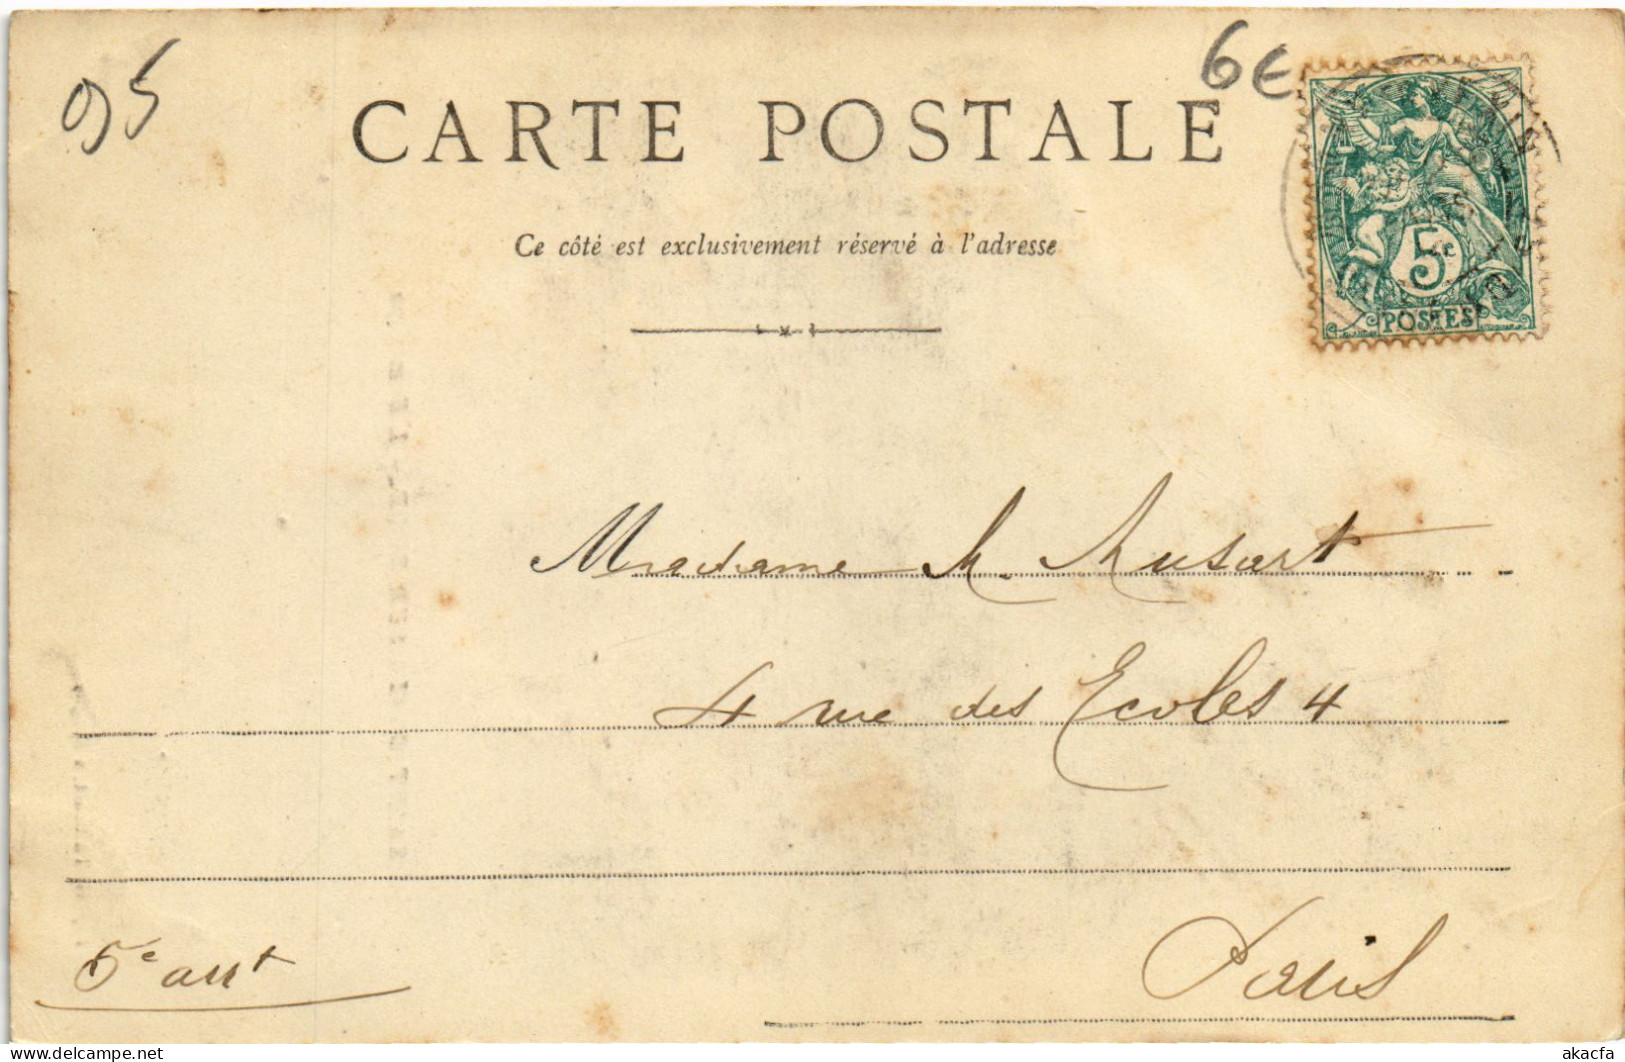 95
6€
CARTE POSTALE
Ce côté est exclusivement réservé à l'adresse
5
POSTES
Madame M. Musart
4 rue des Ecoles 4
5e arrt
Paris
akacfa